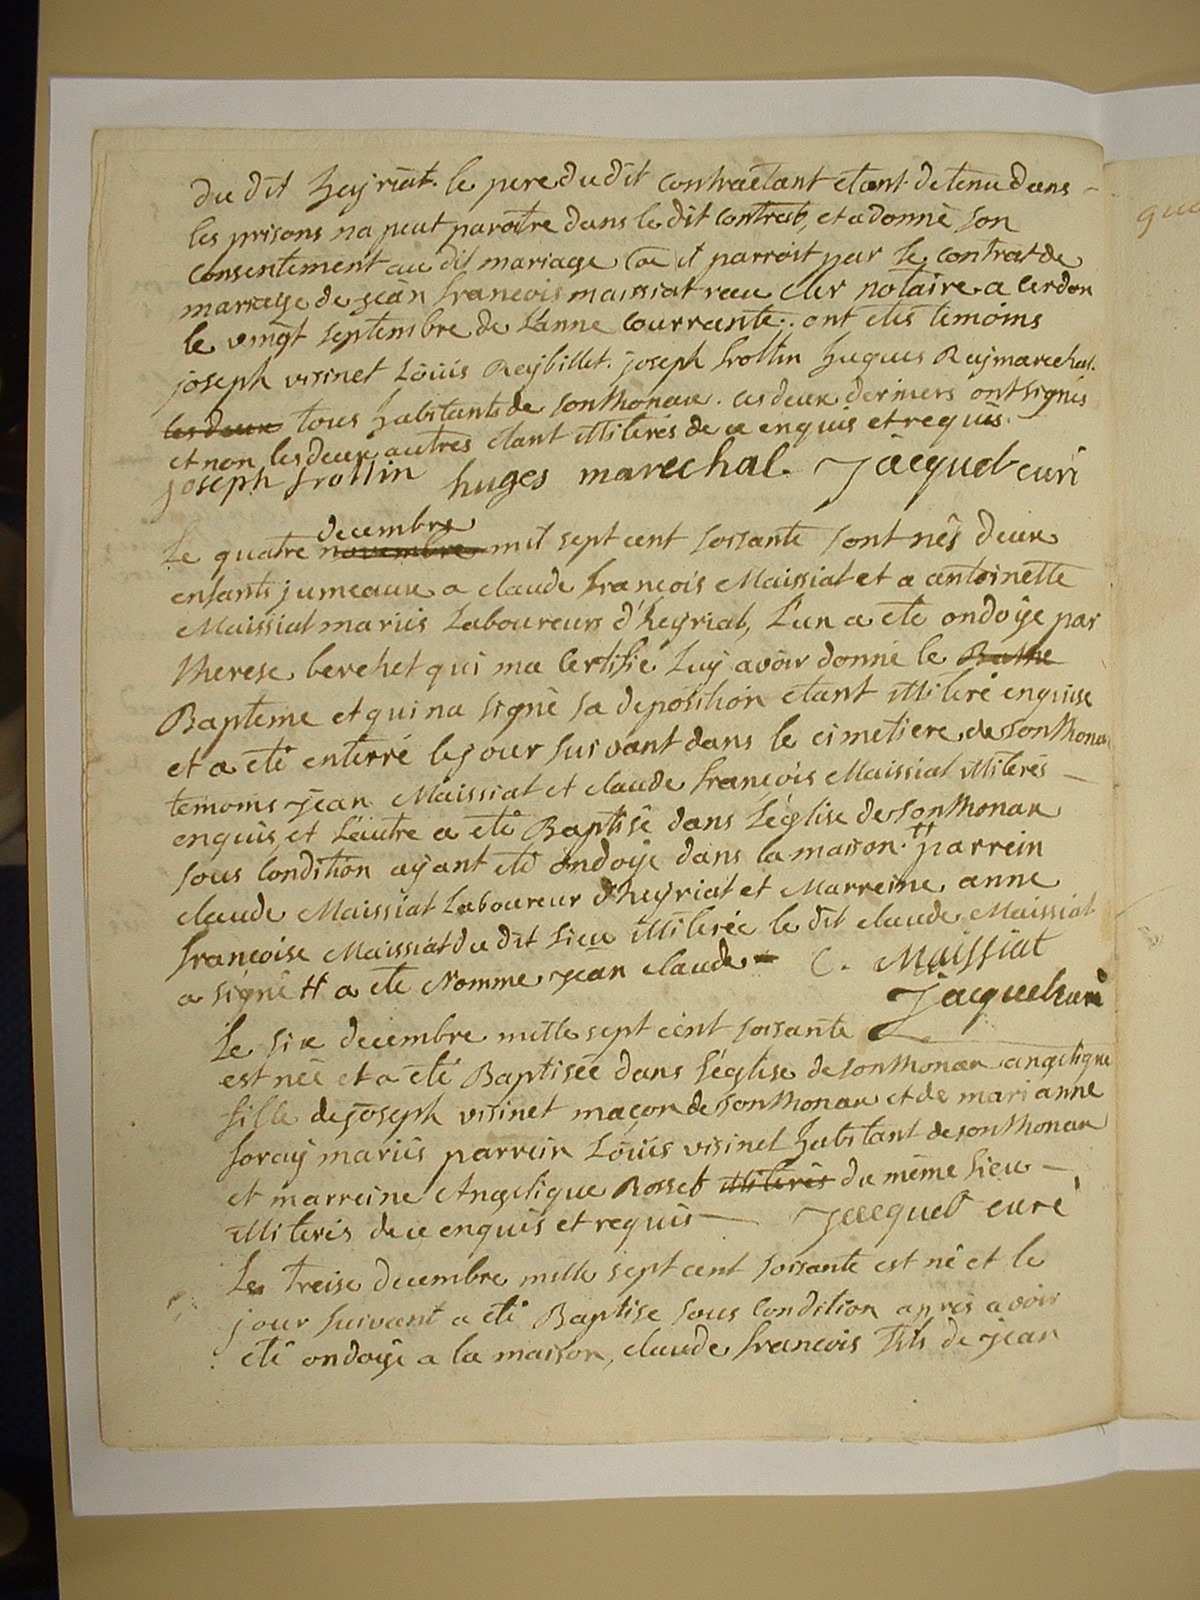 du dit heyriat. le pere du dit contraètant etant detenu dans
les prisons na peut paroître dans le dit contrat, et a donnè son
consentement au dit mariage coe it parroit par le contrat de
mariage de jean francois maissiat receu cler notaire a cerdon
le vingt septembre de L'anne courrante. ont etès temoins
joseph visinet Loüis Reybillet. joseph frottin hugues Reymarechal.
les deux tous habitants de sonthonax. ces deux derniers ont signès
et non les deux autres etant illiterès de ce enquis et requis.
joseph frottin huges marechal. Jacquet curé
decembre
Le quatre novembre mil sept cent soisante sont nès deux
enfants jumeaux a claude francois Maissiat et a antoinette
Maissiat mariès Laboureurs d'heyriat, L'un a etè ondoÿe par
therese berchet qui ma certifie Luy avoir donnè le Batte
Bapteme et qui na signè sa deposition etant illiterè enquise
et a etè enterré le jour suivant dans le cimetiere de sonthonax
temoins jean Maissiat et claude francois Maissiat illiterès
enquis, et L'autre a etè Baptisè dans L'église de sonthonax
sous condition aÿant etè ondoÿe dans la maison. H parrein
claude Maissiat Laboureur d'heyriat et Marreine anne
francoise Maissiat du dit Lieu illiterèe le dit claude Maissiat
a signè H a etè Nomme jean claude C. Maissiat
Jacquet curè
Le six decembre mille sept cent soisante
est nèe et a etè Baptisèe dans L'église de sonthonax angelique
fille de joseph visinet maçon de sonthonax et de marianne
foray mariès parrein Loüis visinet habitant de sonthonax
et marreine Angelique Rosset illiterès du même Lieu
illiterès de ce enquis et requis Jacquet curé
Le treise decembre mille sept cent soisante est nè et le
jour suivant a etè Baptise sous condition apres avoir
etè ondoÿe a la maison, claude francois fils de jean